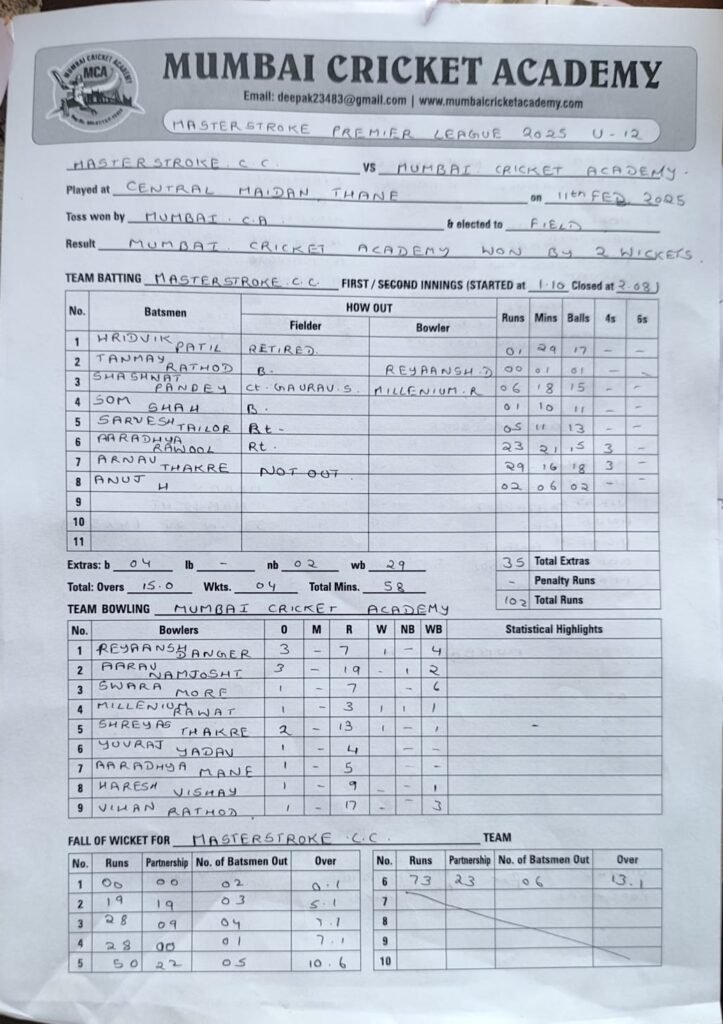 MUMBAI CRICKET ACADEMY
MCA
MUMBAI CRICKET ACADEMY
Email: deepak23483@gmail.com | www.mumbaicricketacademy.com
MASTERSTROKE PREMIER LEAGUE 2025 U-12
MASTERSTROKE. C.C. VS MUMBAI CRICKET ACADEMY.
Played at CENTRAL MAIDAN, THANE on 11th FEB, 2025
Toss won by MUMBAI. C.A & elected to FIELD
Result MUMBAI. CRICKET ACADEMY WON BY 2 WICKETS.
TEAM BATTING MASTERSTROKE. C.C. FIRST / SECOND INNINGS (STARTED at 1.10 Closed at 2.08)
No. Batsmen HOW OUT Runs Mins Balls 4s 6s
Fielder Bowler
1 HRIDVIK PATIL RETIRED. 01 29 17 - -
2 TANMAY RATHOD B. REYAANSH.D 00 01 01 - -
3 SHASHWAT PANDEY Ct. GAURAV.S. MILLENIUM.R 06 18 15 - -
4 SOM SHAH B. 01 10 11 - -
5 SARVESH TAILOR Rt- 05 11 13 - -
6 AARADHYA RAWOOL Rt. 23 21 15 3 -
7 ARNAV THAKRE NOT OUT 29 16 18 3 -
8 ANUJ H 02 06 02 - -
9
10
11
Extras: b 04 lb - nb 02 wb 29 35 Total Extras
- Penalty Runs
Total: Overs 15.0 Wkts. 04 Total Mins. 58 102 Total Runs
TEAM BOWLING MUMBAI CRICKET ACADEMY
No. Bowlers O M R W NB WB Statistical Highlights
1 REYAANSH DANGER 3 - 7 1 - 4
2 AARAV NAMJOSHI 3 - 19 - 1 2
3 SWARA MORE 1 - 7 - - 6
4 MILLENIUM RAWAT 1 - 3 1 1 1
5 SHREYAS THAKRE 2 - 13 1 - 1 -
6 YUVRAJ YADAV 1 - 4 - -
7 AARADHYA MANE 1 - 5 - -
8 HARESH VISHAY 1 - 9 - - 1
9 VIHAN RATHOD 1 - 17 - - 3
FALL OF WICKET FOR MASTERSTROKE C.C. TEAM
No. Runs Partnership No. of Batsmen Out Over No. Runs Partnership No. of Batsmen Out Over
1 00 00 02 0.1 6 73 23 06 13.1
2 19 19 03 5.1 7
3 28 09 04 7.1 8
4 28 00 01 7.1 9
5 50 22 05 10.6 10